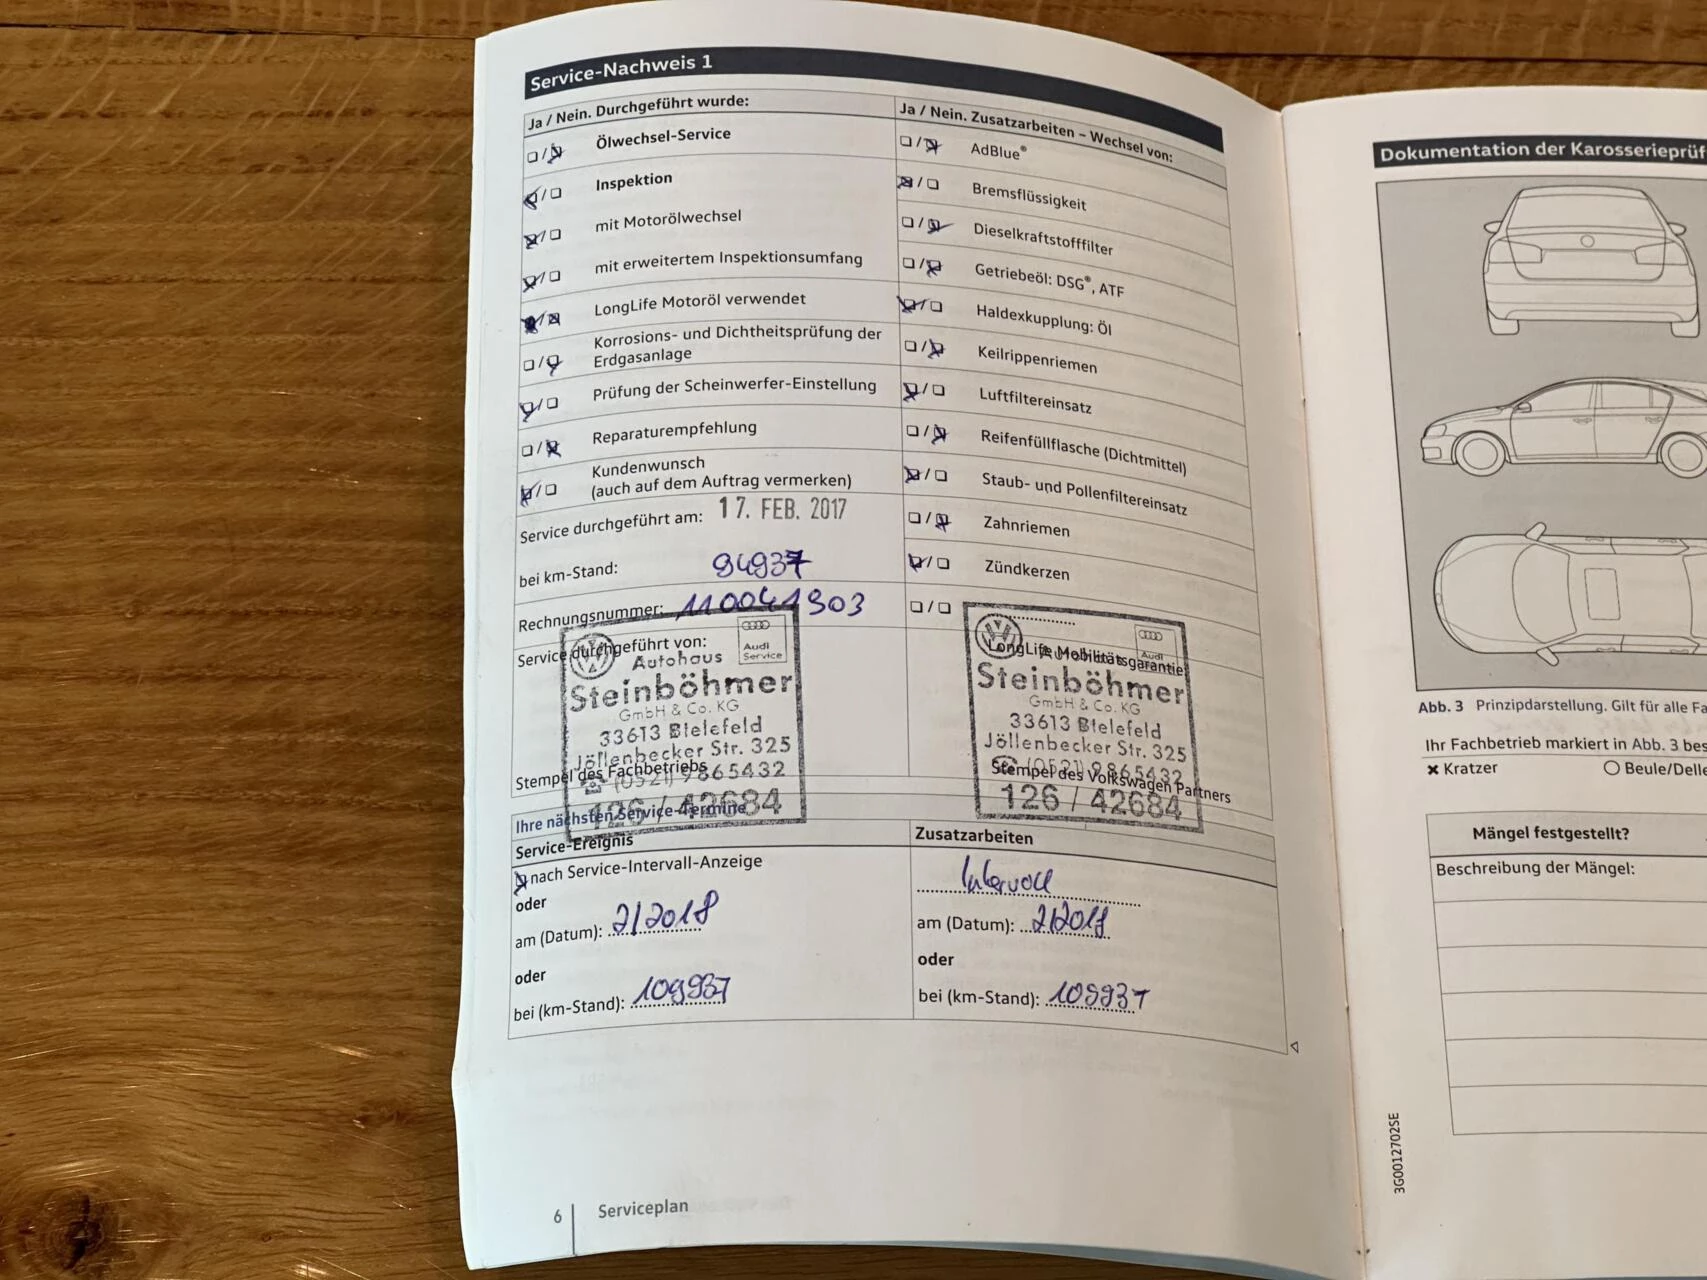 Service-Nachweis 1
Ja / Nein. Durchgeführt wurde:
Ölwechsel-Service
Inspektion
mit Motorölwechsel
mit erweitertem Inspektionsumfang
LongLife Motoröl verwendet
Korrosions- und Dichtheitsprüfung der
Erdgasanlage
Prüfung der Scheinwerfer-Einstellung
Reparaturempfehlung
Kundenwunsch
(auch auf dem Auftrag vermerken)
Service durchgeführt am: 17. FEB. 2017
bei km-Stand: 94937
Rechnungsnummer: 110041903
Service durchgeführt von:
Autohaus
Audi
Service
Steinböhmer
GmbH & Co. KG
33613 Bielefeld
Jöllenbecker Str. 325
(0521) 9865432
Stempel des Fachbetriebs
126 / 42684
Ja / Nein. Zusatzarbeiten – Wechsel von:
AdBlue®
Bremsflüssigkeit
Dieselkraftstofffilter
Getriebeöl: DSG®, ATF
Haldexkupplung: Öl
Keilrippenriemen
Luftfiltereinsatz
Reifenfüllflasche (Dichtmittel)
Staub- und Pollenfiltereinsatz
Zahnriemen
Zündkerzen
LongLife Mobilitätsgarantie
Autohaus
Audi
Steinböhmer
GmbH & Co. KG
33613 Bielefeld
Jöllenbecker Str. 325
(0521) 9865432
Stempel des Volkswagen Partners
126 / 42684
Ihre nächsten Service-Termine
Service-Ereignis
nach Service-Intervall-Anzeige
oder
am (Datum): 2/2018
oder
bei (km-Stand): 109937
Zusatzarbeiten
Intervall
am (Datum): 2/2018
oder
bei (km-Stand): 109937
6 Serviceplan
Dokumentation der Karosserieprüf
Abb. 3 Prinzipdarstellung. Gilt für alle Fa
Ihr Fachbetrieb markiert in Abb. 3 bes
× Kratzer
○ Beule/Delle
Mängel festgestellt?
Beschreibung der Mängel:
3G0012702SE